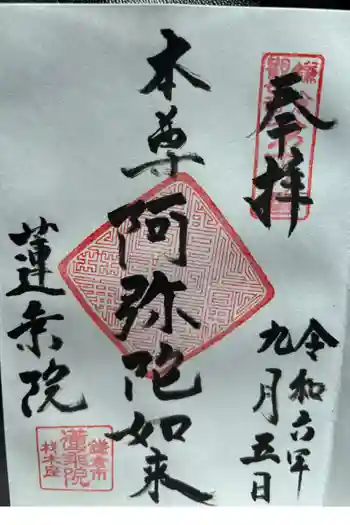 奉拝
令和六年
九月五日
本尊阿弥陀如来
蓮乗院
鎌倉市
蓮乗院
材木座